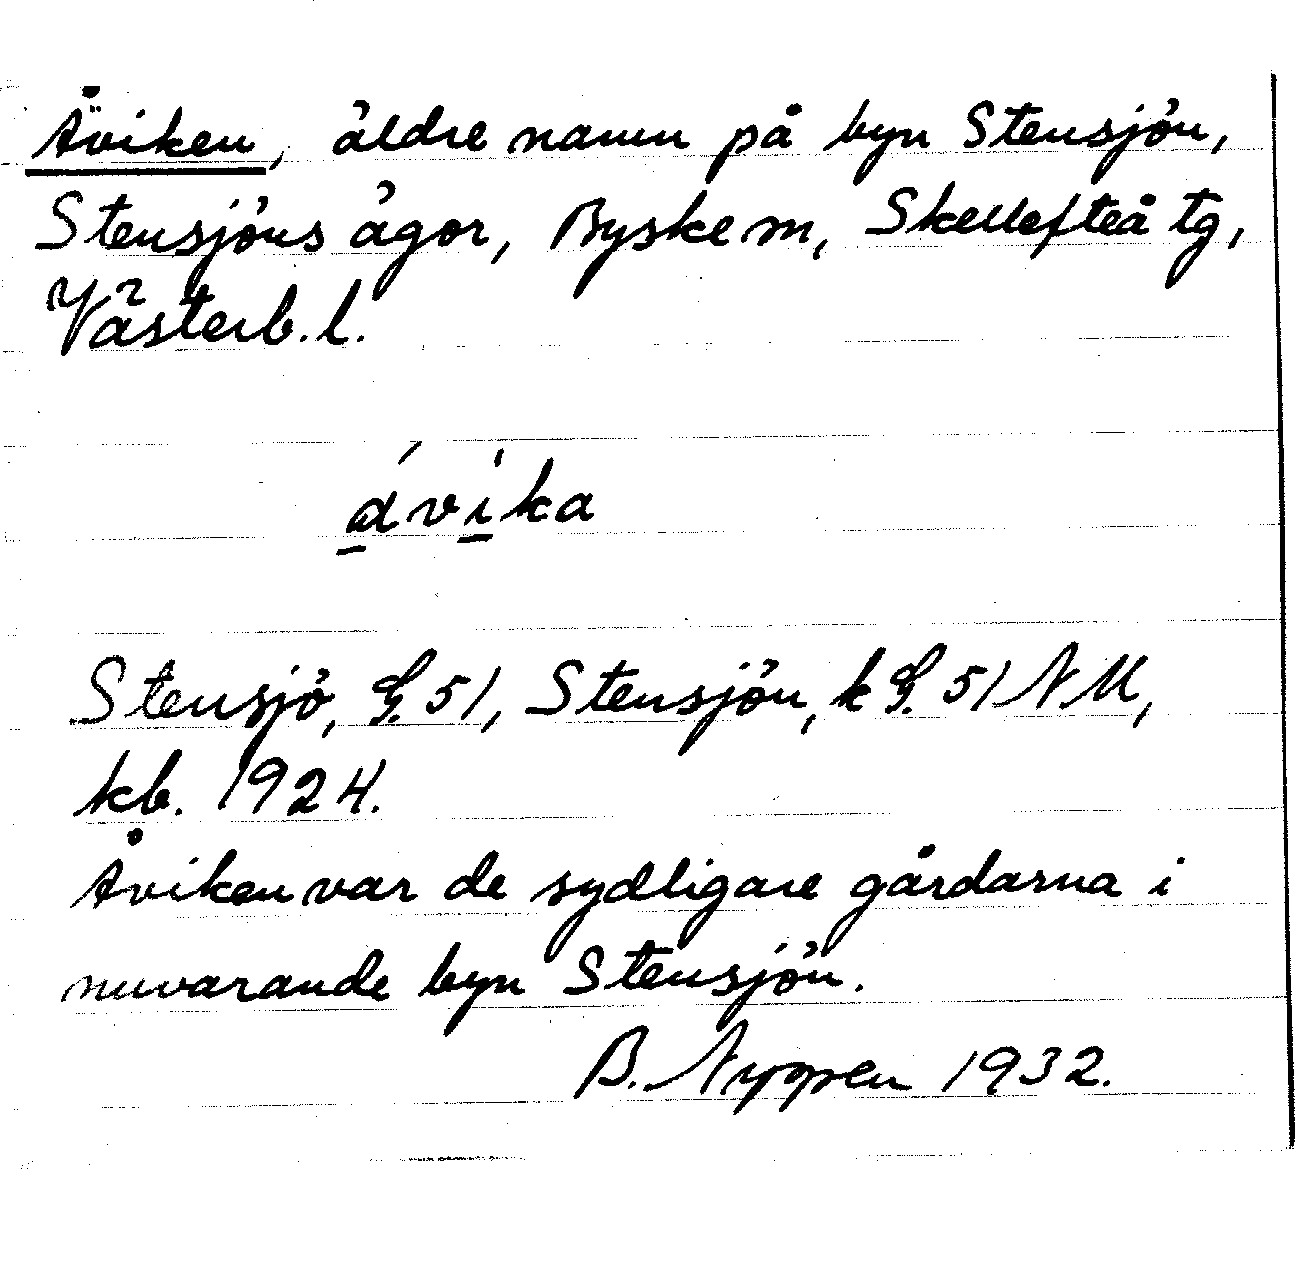 Åviken, äldre namn på byn Stensjön,
Stensjöns ägor, Byske sn, Skellefteå tg,
Västerb. l.
ávíka
Stensjö, G. 51, Stensjön, k G. 51 NM,
kb. 1924.
Åviken var de sydligare gårdarna i
nuvarande byn Stensjön.
B. 1932.